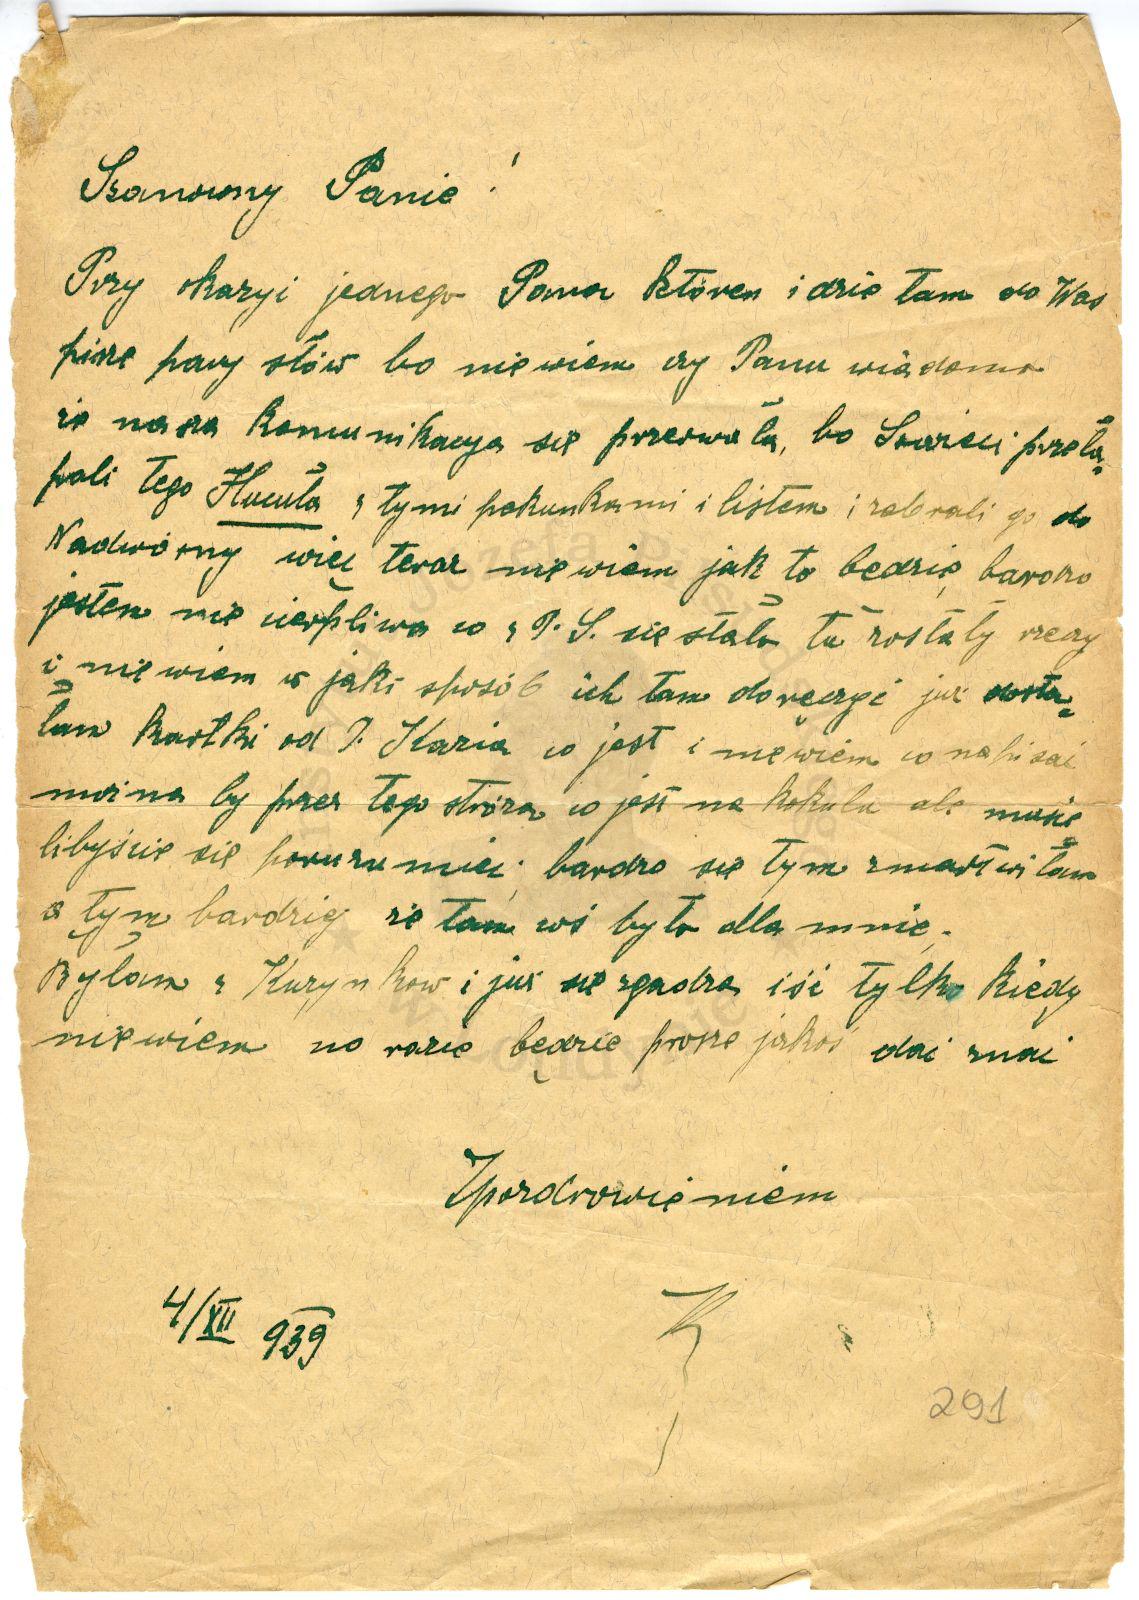 Szanowny Panie!
Przy okazyi jednego Pana któren idzie tam do Was
pisze pary słów bo niewiem czy Panu wiadomo
że nasza komunikacya się przerwała, bo przeła-
pali tego Hucuła z tymi pakunkami i listem i zabrali go do
Nadwórny więc teraz niewiem jak to będzie, bardzo
jestem nie cierpliwa co z P. S. się stało tu zostały rzeczy
i niewiem w jaki sposób ich tam doręczyć już dosta-
łam kartki od P. Kazia co jest i niewiem co napisać
można by przez tego stróża co jest na Kukulu ale musie
libyście się porozumieć, bardzo się tym zmartwiłam
a tym bardziej że tam coś było dla mnie.
Byłam z i już się zgadza iść tylko kiedy
niewiem no razie będzie prosze jakoś dać znać
Zpozdrowieniem
4/XII 939
K
291